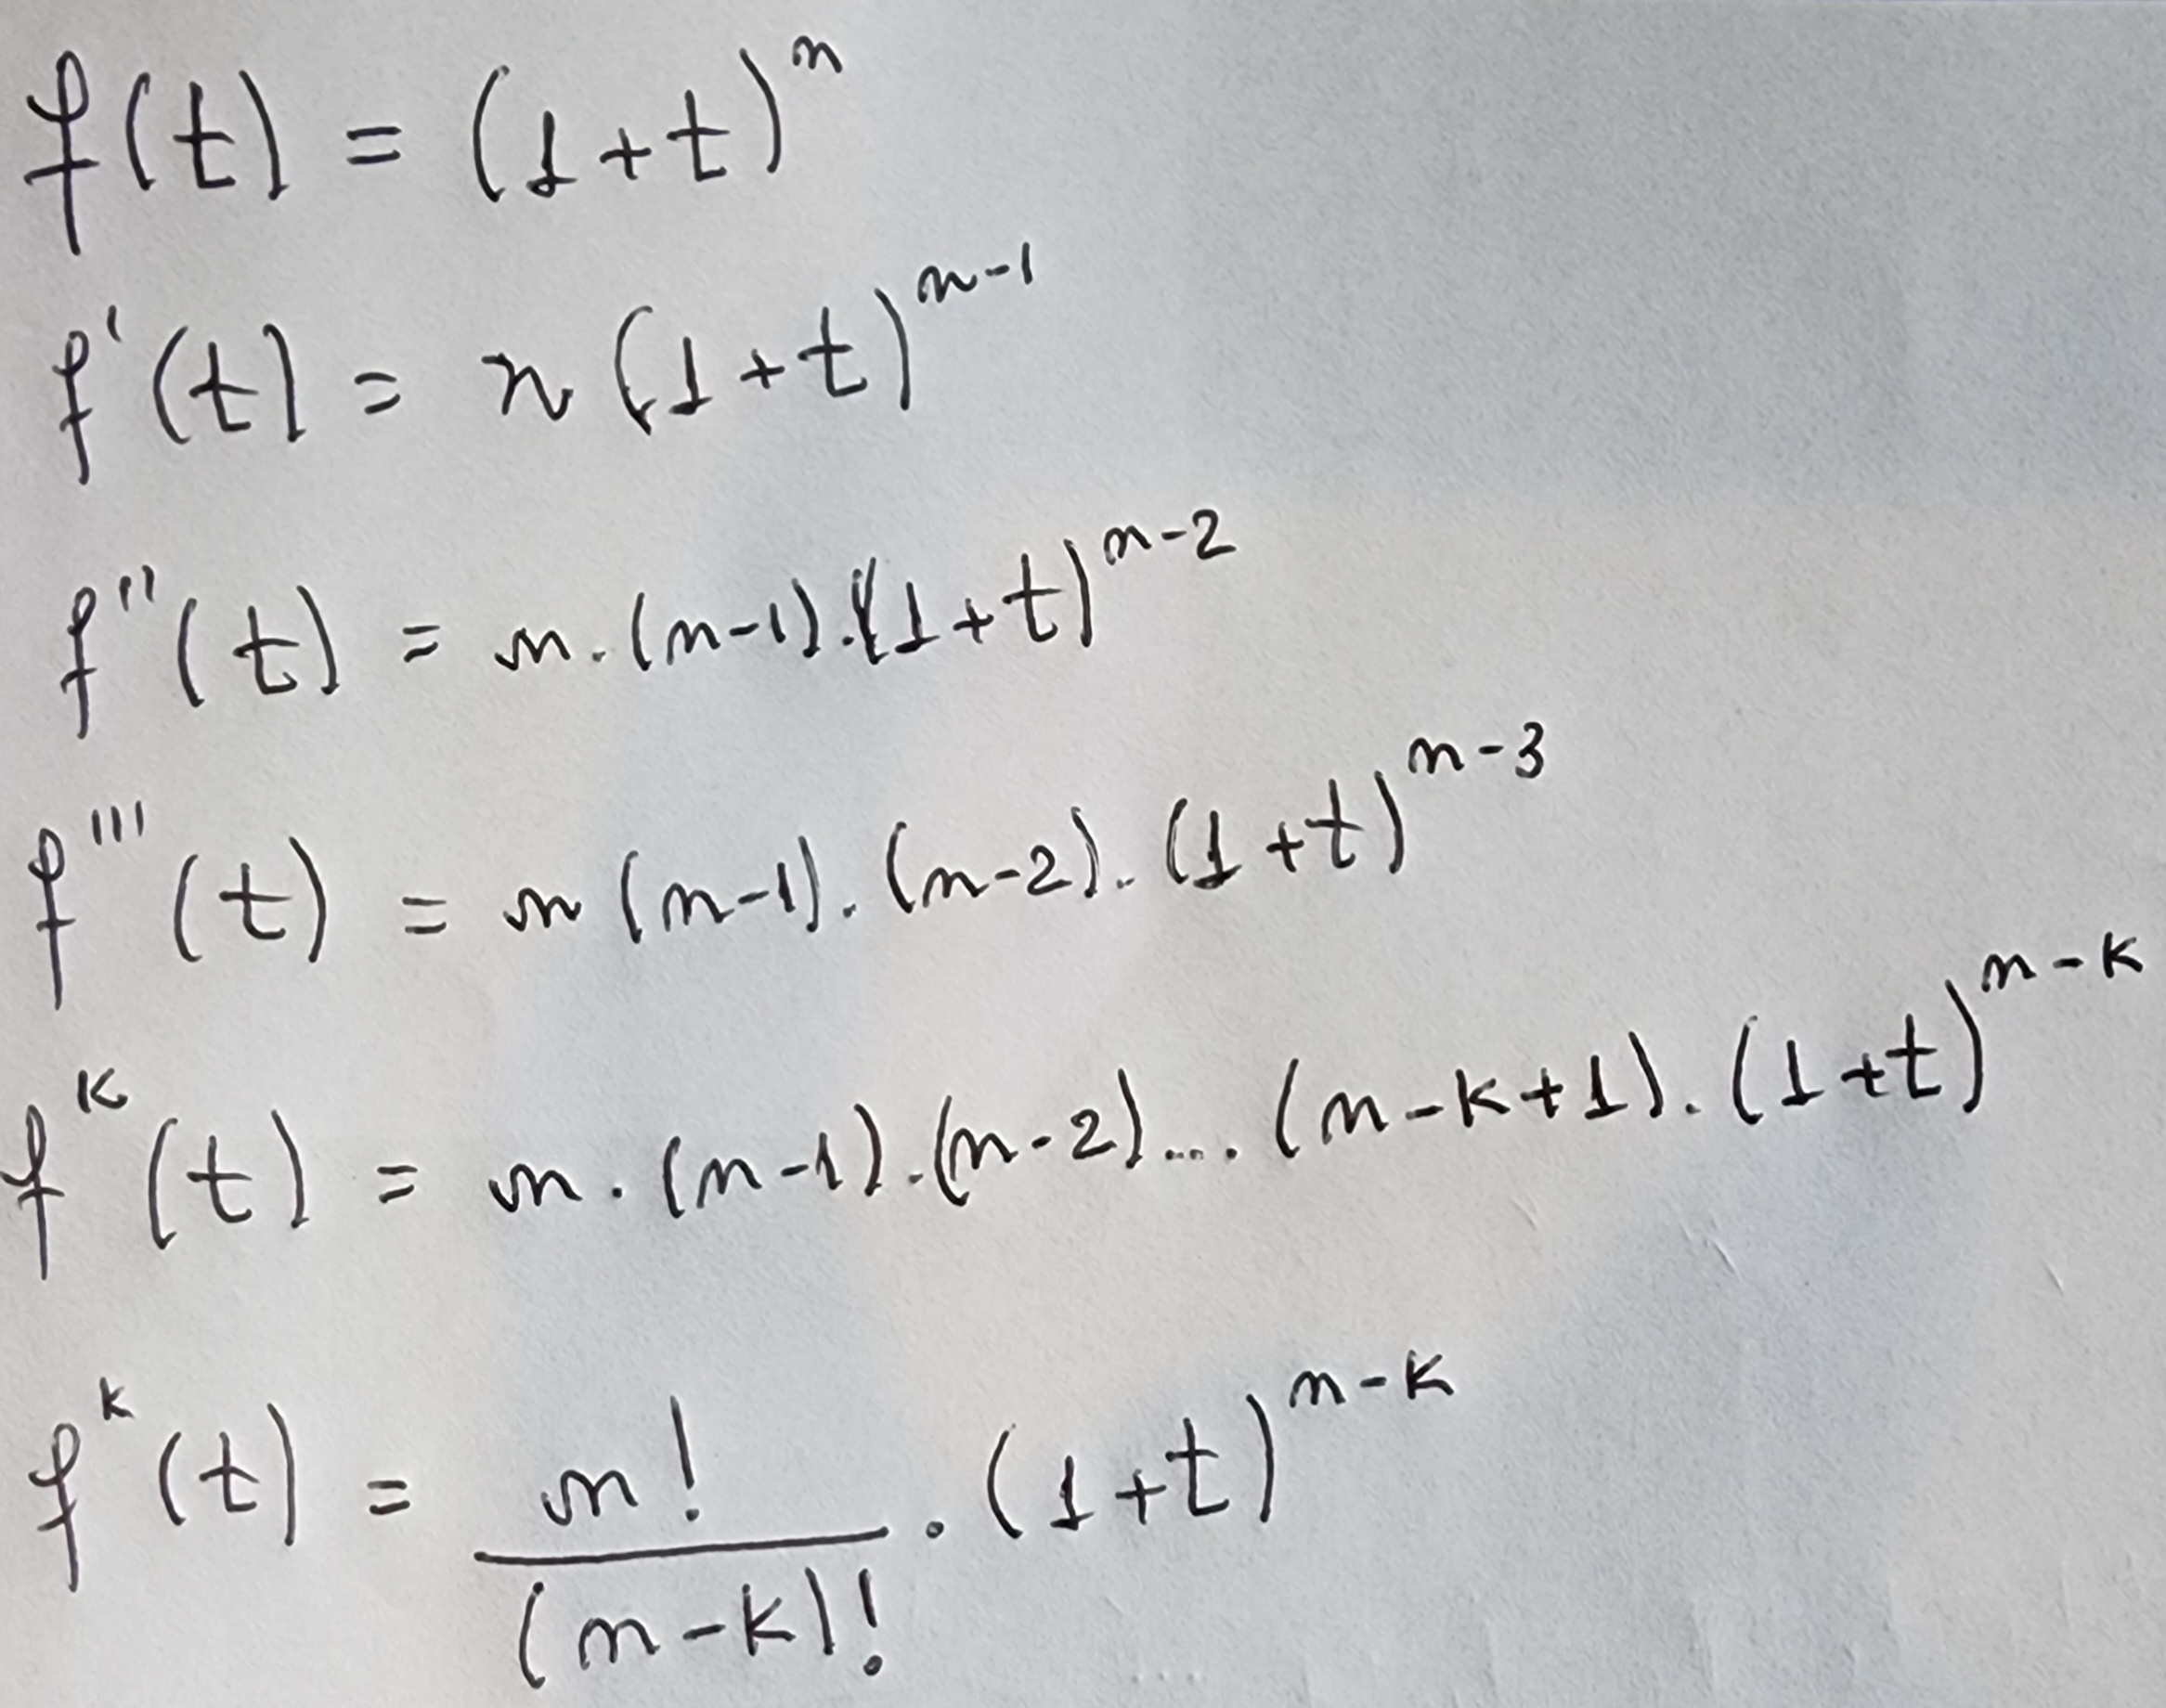 f(t) = (1+t)^n
f'(t) = n(1+t)^{n-1}
f''(t) = n.(n-1).(1+t)^{n-2}
f'''(t) = n(n-1).(n-2).(1+t)^{n-3}
f^k(t) = n.(n-1).(n-2)....(n-k+1).(1+t)^{n-k}
f^k(t) = \frac{n!}{(n-k)!} . (1+t)^{n-k}